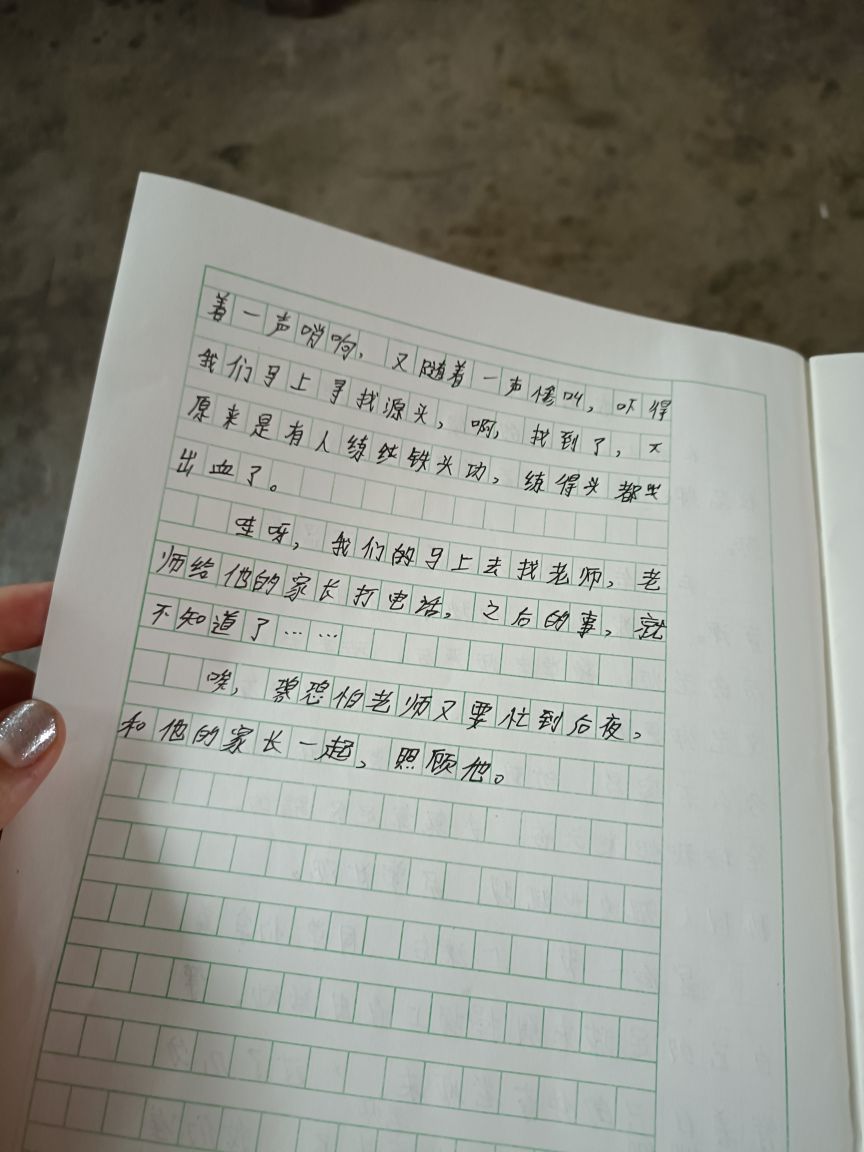 着一声哨响，又随着一声惨叫，吓得
我们马上寻找源头，啊，找到了，
原来是有人练铁头功，练得头都
出血了。
哇呀，我们的马上去找老师，老
师给他的家长打电话，之后的事，就
不知道了……
唉，恐怕老师又要忙到后夜，
和他的家长一起，照顾他。